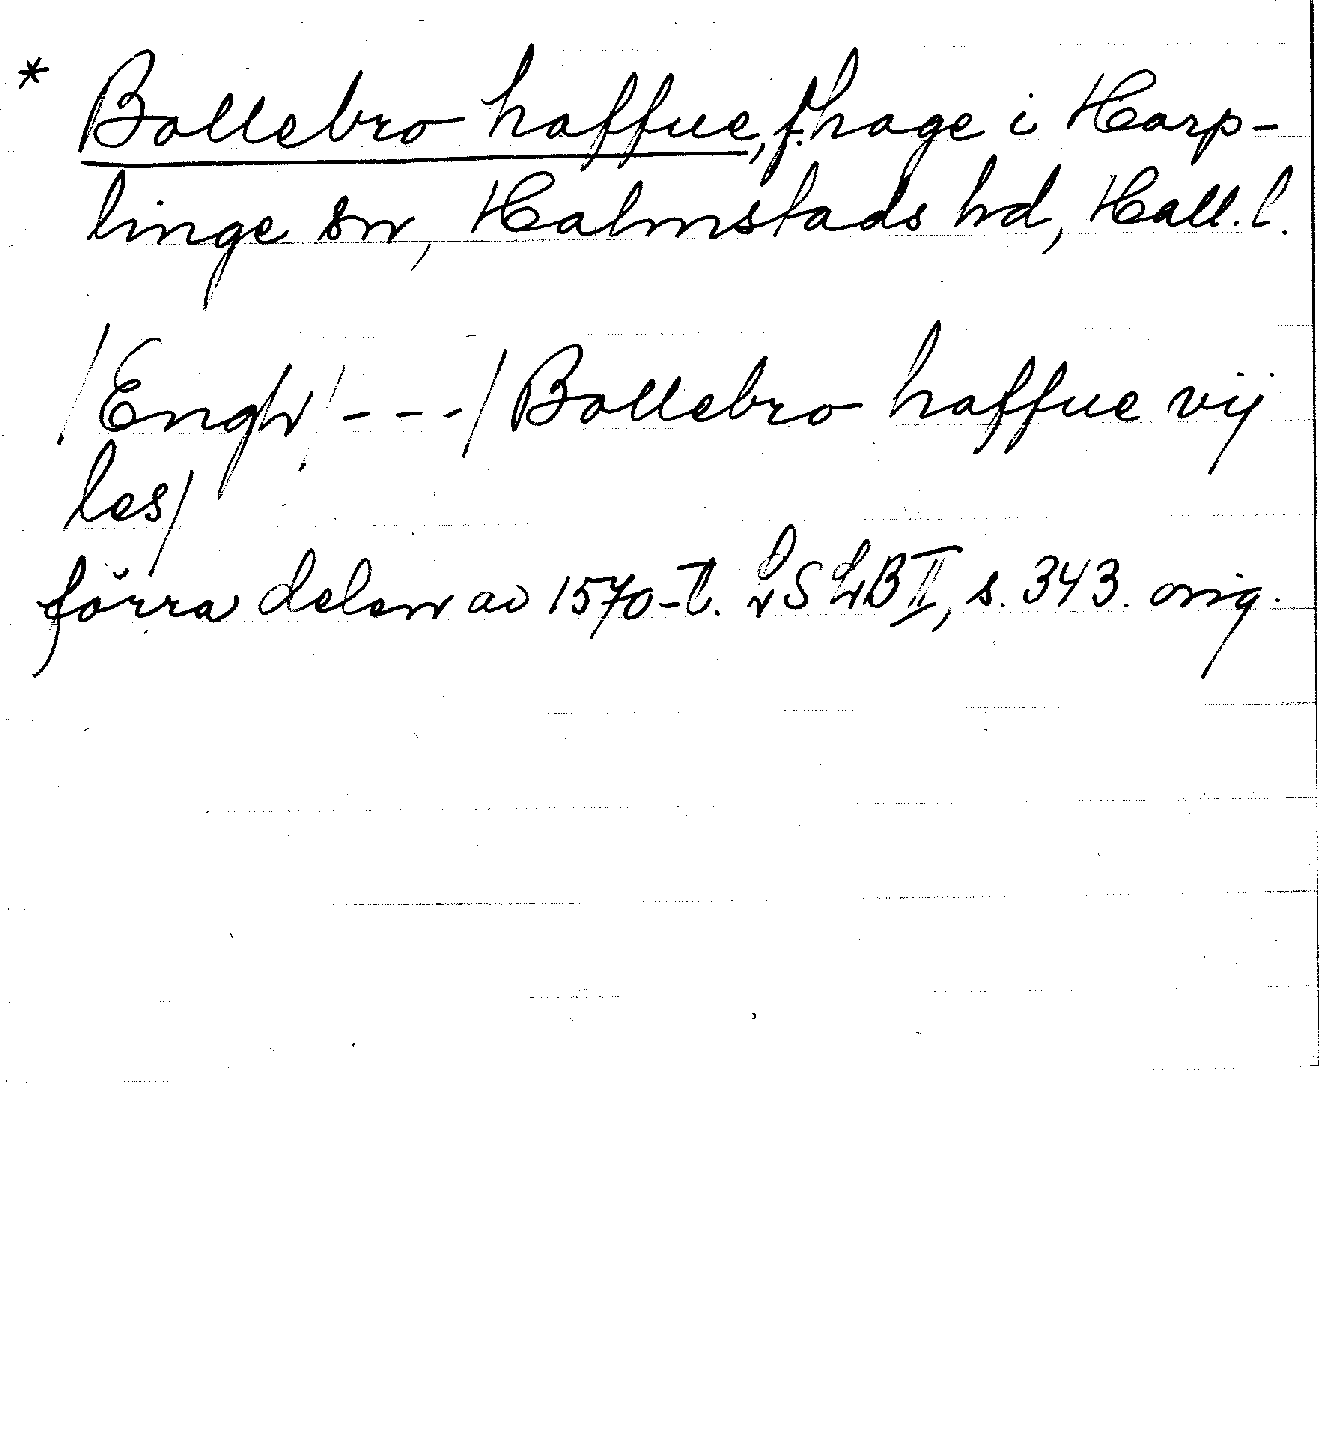 * Bollebro haffue, f. hage i Harp-
linge sn, Halmstads hd, Hall. l.
/Engh/ - - - / Bollebro haffue vij
les/
förra delen av 1570-t. LSLB II, s. 343. orig.